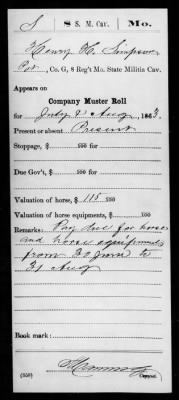 S | 8 S. M. Cav. | Mo.
Henry H. Simpson
Pvt., Co. G, 8 Reg't Mo. State Militia Cav.
Appears on
Company Muster Roll
for July & Aug, 1863.
Present or absent Present
Stoppage, $ 100 for
Due Gov't, $ 100 for
Valuation of horse, $ 115 100
Valuation of horse equipments, $ 100
Remarks: Pay due for horse
and horse equipments
from 30 June to
31 Aug
Book mark:
(358)
Copyist.